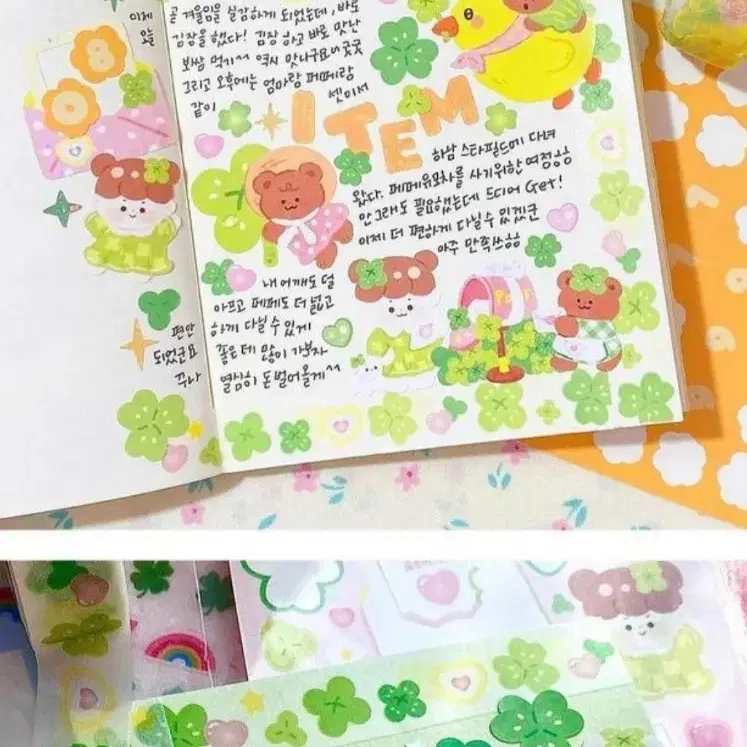 이제
곧 겨울임을 실감하게 되었는데, 바로
김장을 했다! 김장 하고 바로 맛난
보쌈 먹기^^ 역시 맛나구요ㅎ 굿굿
그리고 오후에는 엄마랑 페페랑
같이 셋이서
ITEM
하남 스타필드에 다녀
왔다. 페페유모차를 사기위한 여정ㅎㅎ
안그래도 필요했는데 드디어 Get!
이제 더 편하게 다닐수 있겠군
아주 만족쓰ㅎㅎ
내 어깨도 덜
아프고 페페도 더 넓고
하게 다닐 수 있게
좋은데 많이 가보자
열심히 돈벌어올게^^
편안
되었군요
꾸나